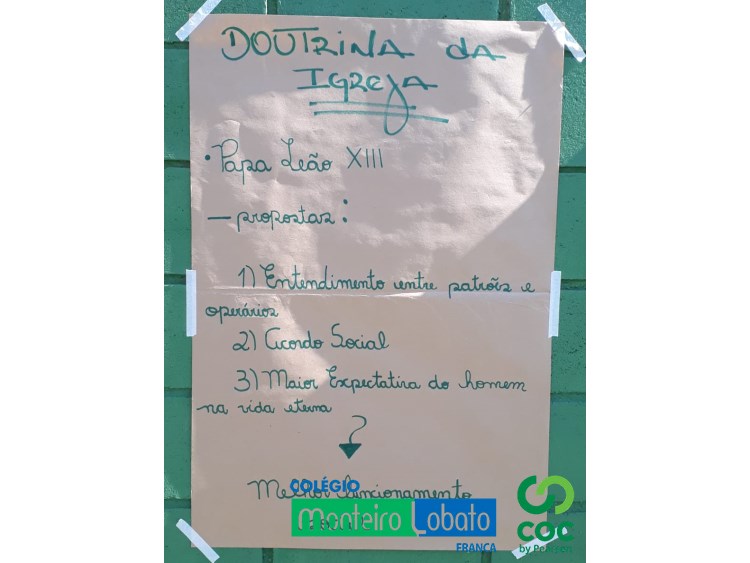 DOUTRINA DA
IGREJA
• Papa Leão XIII
— propostas:
1) Entendimento entre patrões e
operários
2) Acordo Social
3) Maior Expectativa do homem
na vida eterna
Melhor funcionamento
COLÉGIO
Monteiro Lobato
FRANCA
COC
by Pearson